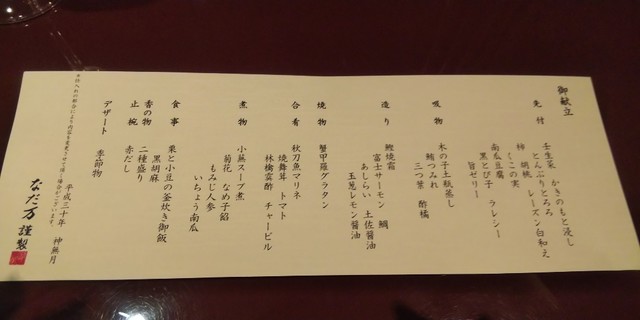 御献立
先付
壬生菜 かきのもと浸し
とんぶりとろろ
柿 胡桃 レーズン白和え
くこの実
南瓜豆腐 ラレシー
黒とび子
旨ゼリー
吸物
木の子土瓶蒸し
鱧つみれ
三つ葉 酢橘
造り
鰹焼霜 鯛
富士サーモン
あしらい 土佐醤油
玉葱レモン醤油
焼物
蟹甲羅グラタン
合肴
秋刀魚マリネ
焼舞茸 トマト
林檎霙酢 チャービル
煮物
小蕪スープ煮
菊花 なめ子餡
もみじ人参
いちょう南瓜
食事
栗と小豆の釜炊き御飯
黒胡麻
香の物
二種盛り
止椀
赤だし
デザート
季節物
平成三十年 神無月
なだ万 謹製